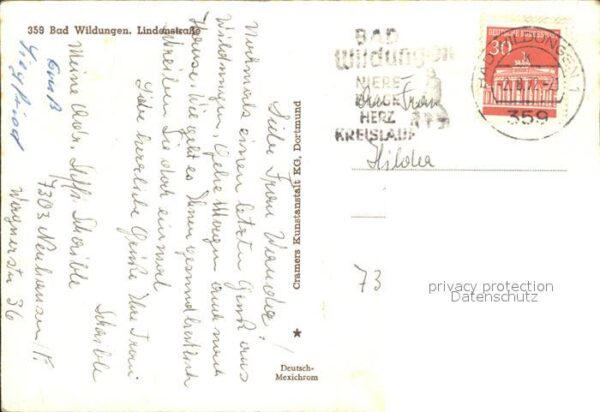 359 Bad Wildungen. Lindenstraße
Liebe Frau
Nochmals einen letzten Gruß aus
Wildungen, Gehe Morgen auch nach
Hause. Wie geht es Ihnen gesundheitlich
schreiben Sie doch einmal
Liebe herzliche Grüße Ihre Frau
Schaible
Meine Adr. Steffi Schaible
7303 Neuhausen/F.
Wagnerstr 36
Gruß
Siegfried
Cramers Kunstanstalt KG, Dortmund
★
Deutsch-
Mexichrom
BAD
Wildungen
NIERE
BLASE
HERZ
KREISLAUF
DEUTSCHE BUNDESPOST
30
BAD WILDUNGEN 1
359
Frau
Hilda
73
privacy protection
Datenschutz